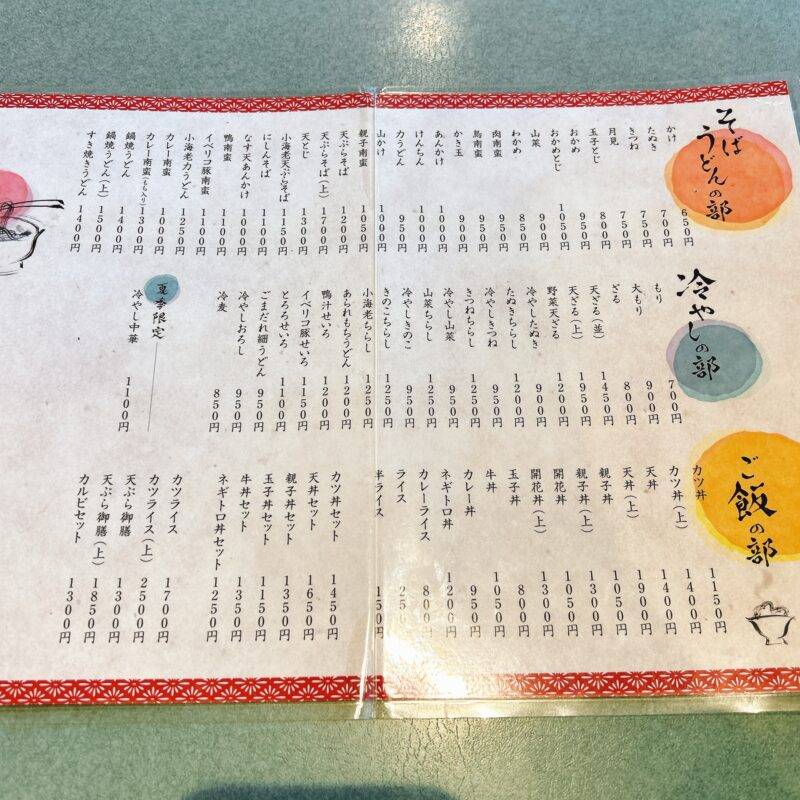 そば
うどんの部
かけ 650円
たぬき 700円
きつね 750円
月見 750円
玉子とじ 800円
おかめ 900円
おかめとじ 1050円
山菜 900円
わかめ 900円
肉南蛮 950円
鳥南蛮 950円
かき玉 900円
あんかけ 1000円
けんちん 1000円
力うどん 950円
山かけ 1000円
親子南蛮 1050円
天ぷらそば 1200円
天ぷらそば(上) 1700円
天とじ 1300円
小海老天ぷらそば 1150円
にしんそば 1100円
なす天あんかけ 1000円
鴨南蛮 1100円
イベリコ豚南蛮 1100円
小海老力うどん 1250円
カレー南蛮 1000円
カレー南蛮(もち入り) 1300円
鍋焼うどん 1400円
鍋焼うどん(上) 1500円
すき焼きうどん 1400円
冷やしの部
もり 700円
大もり 900円
ざる 800円
天ざる(並) 1450円
天ざる(上) 1950円
野菜天ざる 1200円
冷やしたぬき 900円
たぬきちらし 1200円
冷やしきつね 950円
きつねちらし 1250円
冷やし山菜 950円
山菜ちらし 1250円
冷やしきのこ 950円
きのこちらし 1250円
小海老ちらし 1250円
あられもちうどん 1200円
鴨汁せいろ 1200円
イベリコ豚せいろ 1150円
とろろせいろ 1100円
ごまだれ細うどん 950円
冷やしおろし 950円
冷麦 850円
夏季限定
冷やし中華 1100円
ご飯の部
カツ丼 1150円
カツ丼(上) 1400円
天丼 1400円
天丼(上) 1900円
親子丼 1050円
親子丼(上) 1300円
開花丼 1050円
開花丼(上) 1300円
玉子丼 800円
牛丼 1050円
カレー丼 950円
ネギトロ丼 1200円
カレーライス 800円
ライス 250
半ライス 150円
カツ丼セット 1450円
天丼セット 1650円
親子丼セット 1350円
玉子丼セット 1150円
牛丼セット 1350円
ネギトロ丼セット 1250円
カツライス 1700円
カツライス(上) 2500円
天ぷら御膳 1300円
天ぷら御膳(上) 1850円
カルビセット 1300円